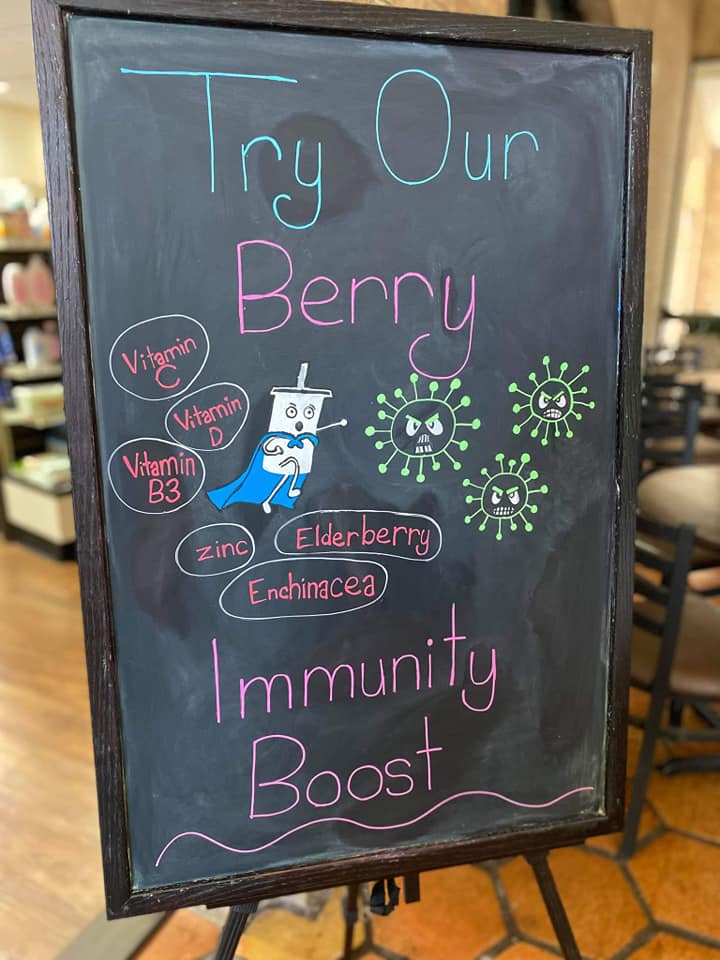 Try Our
Berry
Vitamin
C
Vitamin
D
Vitamin
B3
zinc
Elderberry
Enchinacea
Immunity
Boost